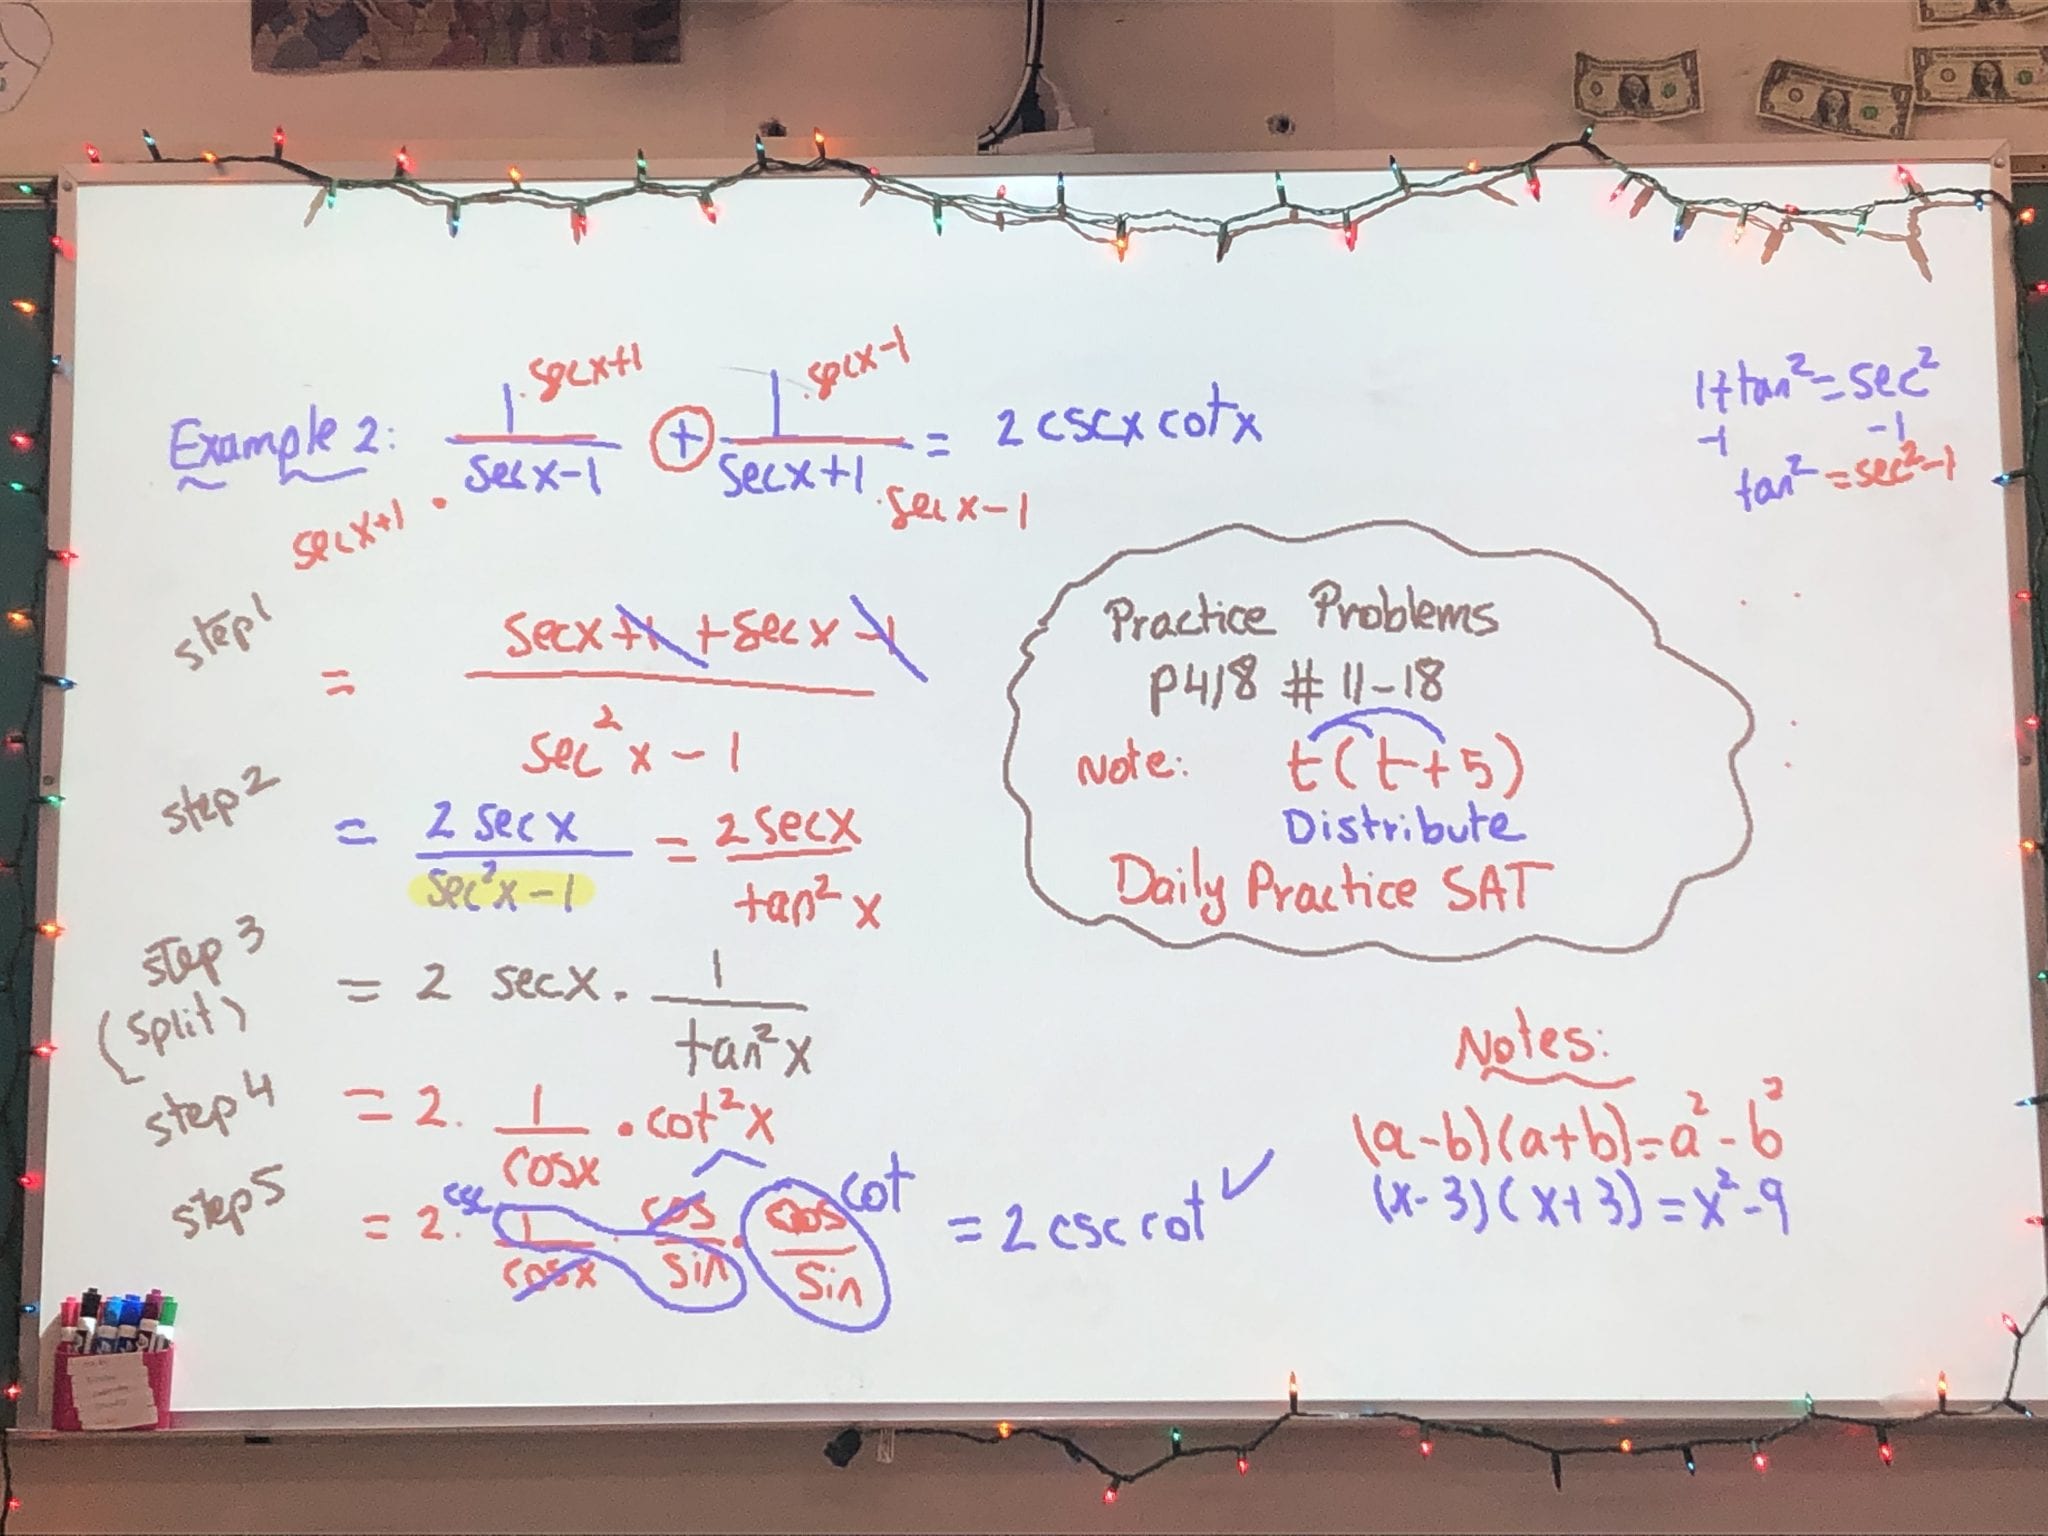 ·secx+1 ·secx-1
Example 2: 1/secx-1 + 1/secx+1 = 2 cscx cotx
secx+1 · ·secx-1
1+tan²=sec²
-1 -1
tan²=sec²-1
step1
= secx+1 +secx-1 / sec²x-1
step2
= 2 secx / sec²x-1 = 2secx / tan²x
step 3
(split)
= 2 secx · 1/tan²x
step 4
= 2 · 1/cosx · cot²x
step5
csc cot
= 2 · 1/cosx · cos/sin · cos/sin = 2 csc cot ✓
Practice Problems
P418 # 11-18
Note: t(t+5)
Distribute
Daily Practice SAT
Notes:
(a-b)(a+b)=a²-b²
(x-3)(x+3)=x²-9